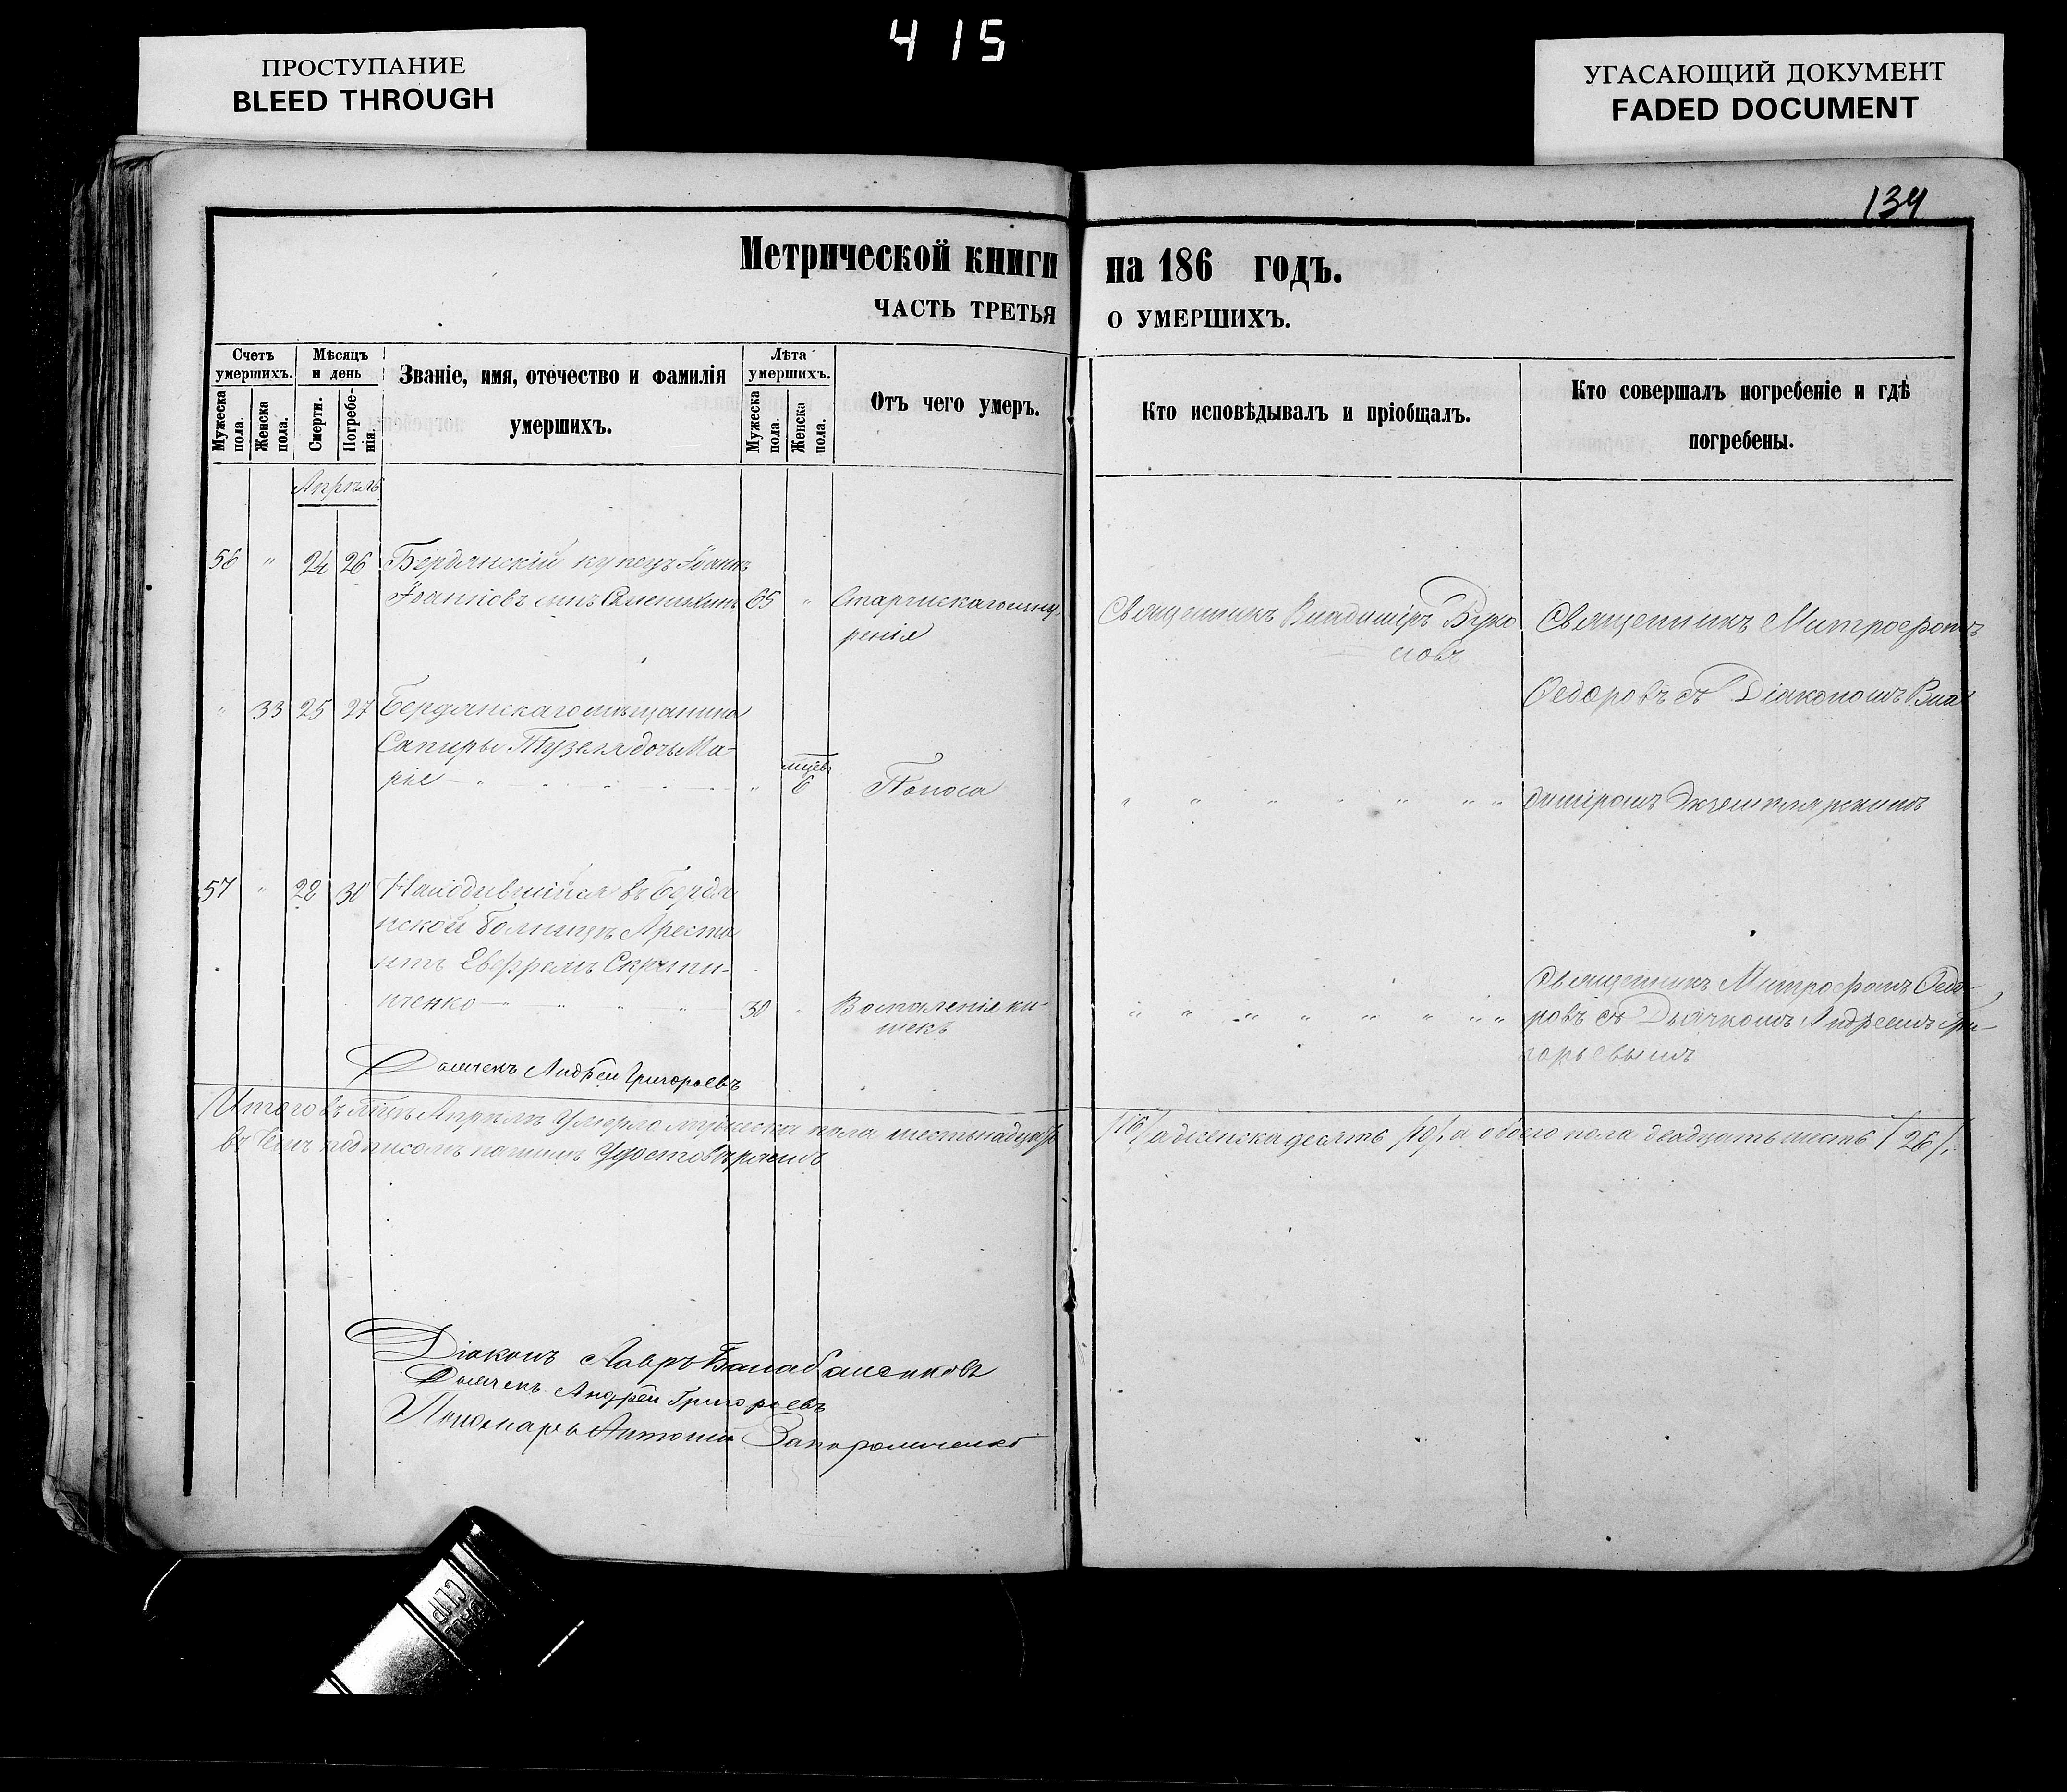 415
ПРОСТУПАНИЕ
BLEED THROUGH
УГАСАЮЩИЙ ДОКУМЕНТ
FADED DOCUMENT
134
Метрической книги на 186 годъ.
ЧАСТЬ ТРЕТЬЯ О УМЕРШИХЪ.
Счетъ умершихъ.
Мужеска пола.
Женска пола.
Мѣсяцъ и день
Смерти.
Погребенія.
Званіе, имя, отечество и фамилія
умершихъ.
Лѣта умершихъ.
Мужеска пола.
Женска пола.
Отъ чего умеръ.
Кто исповѣдывалъ и пріобщалъ.
Кто совершалъ погребеніе и гдѣ
погребены.
Апрѣль
56 " 24 26 Бердянскій купецъ Іоаннъ
Іоанновъ сынъ 65 "
ренія
Священникъ Владиміръ Буко
новъ
Священникъ Митрофанъ
Ѳедоровъ съ Діакономъ Вла
диміромъ Экземплярскимъ
" 33 25 27 Бердянскаго мѣщанина
Спиры дочь Ма-
рія " мцев. 6 Поноса
57 " 28 30 Находившійся въ Бердя
нской больницѣ Ареста
нтъ Ефремъ Скрыпи-
ченко 30 " Воспаленія ки-
шекъ
Священникъ Митрофанъ Ѳедо-
ровъ съ Дьячкомъ Андреемъ Гри-
горьевымъ
Дьячекъ Андрей Григорьевъ
Итого въ Апрѣлѣ умерло мужеска пола шестьнадцать /16/ а женска десять /10/ а обоего пола двадцать шесть /26/.
въ чемъ подписомъ нашимъ удостовѣряемъ
Діаконъ Лавръ Балабаненковъ
Дьячекъ Андрей Григорьевъ
Пономарь Антоній